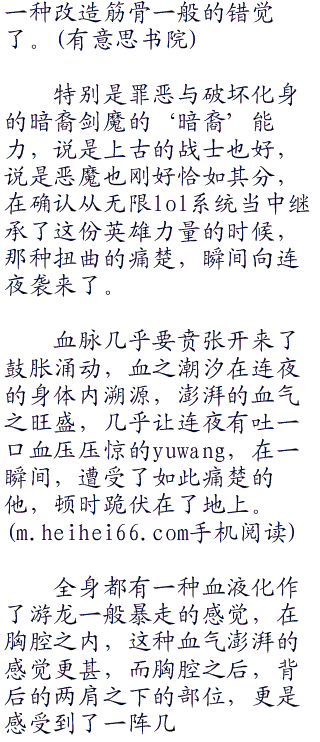 一种改造筋骨一般的错觉
了。(有意思书院)
特别是罪恶与破坏化身
的暗裔剑魔的‘暗裔’能
力，说是上古的战士也好，
说是恶魔也刚好恰如其分，
在确认从无限lol系统当中继
承了这份英雄力量的时候，
那种扭曲的痛楚，瞬间向连
夜袭来了。
血脉几乎要贲张开来了
鼓胀涌动，血之潮汐在连夜
的身体内溯源，澎湃的血气
之旺盛，几乎让连夜有吐一
口血压压惊的yuwang，在一
瞬间，遭受了如此痛楚的
他，顿时跪伏在了地上。
(m.heihei66.com手机阅读)
全身都有一种血液化作
了游龙一般暴走的感觉，在
胸腔之内，这种血气澎湃的
感觉更甚，而胸腔之后，背
后的两肩之下的部位，更是
感受到了一阵几